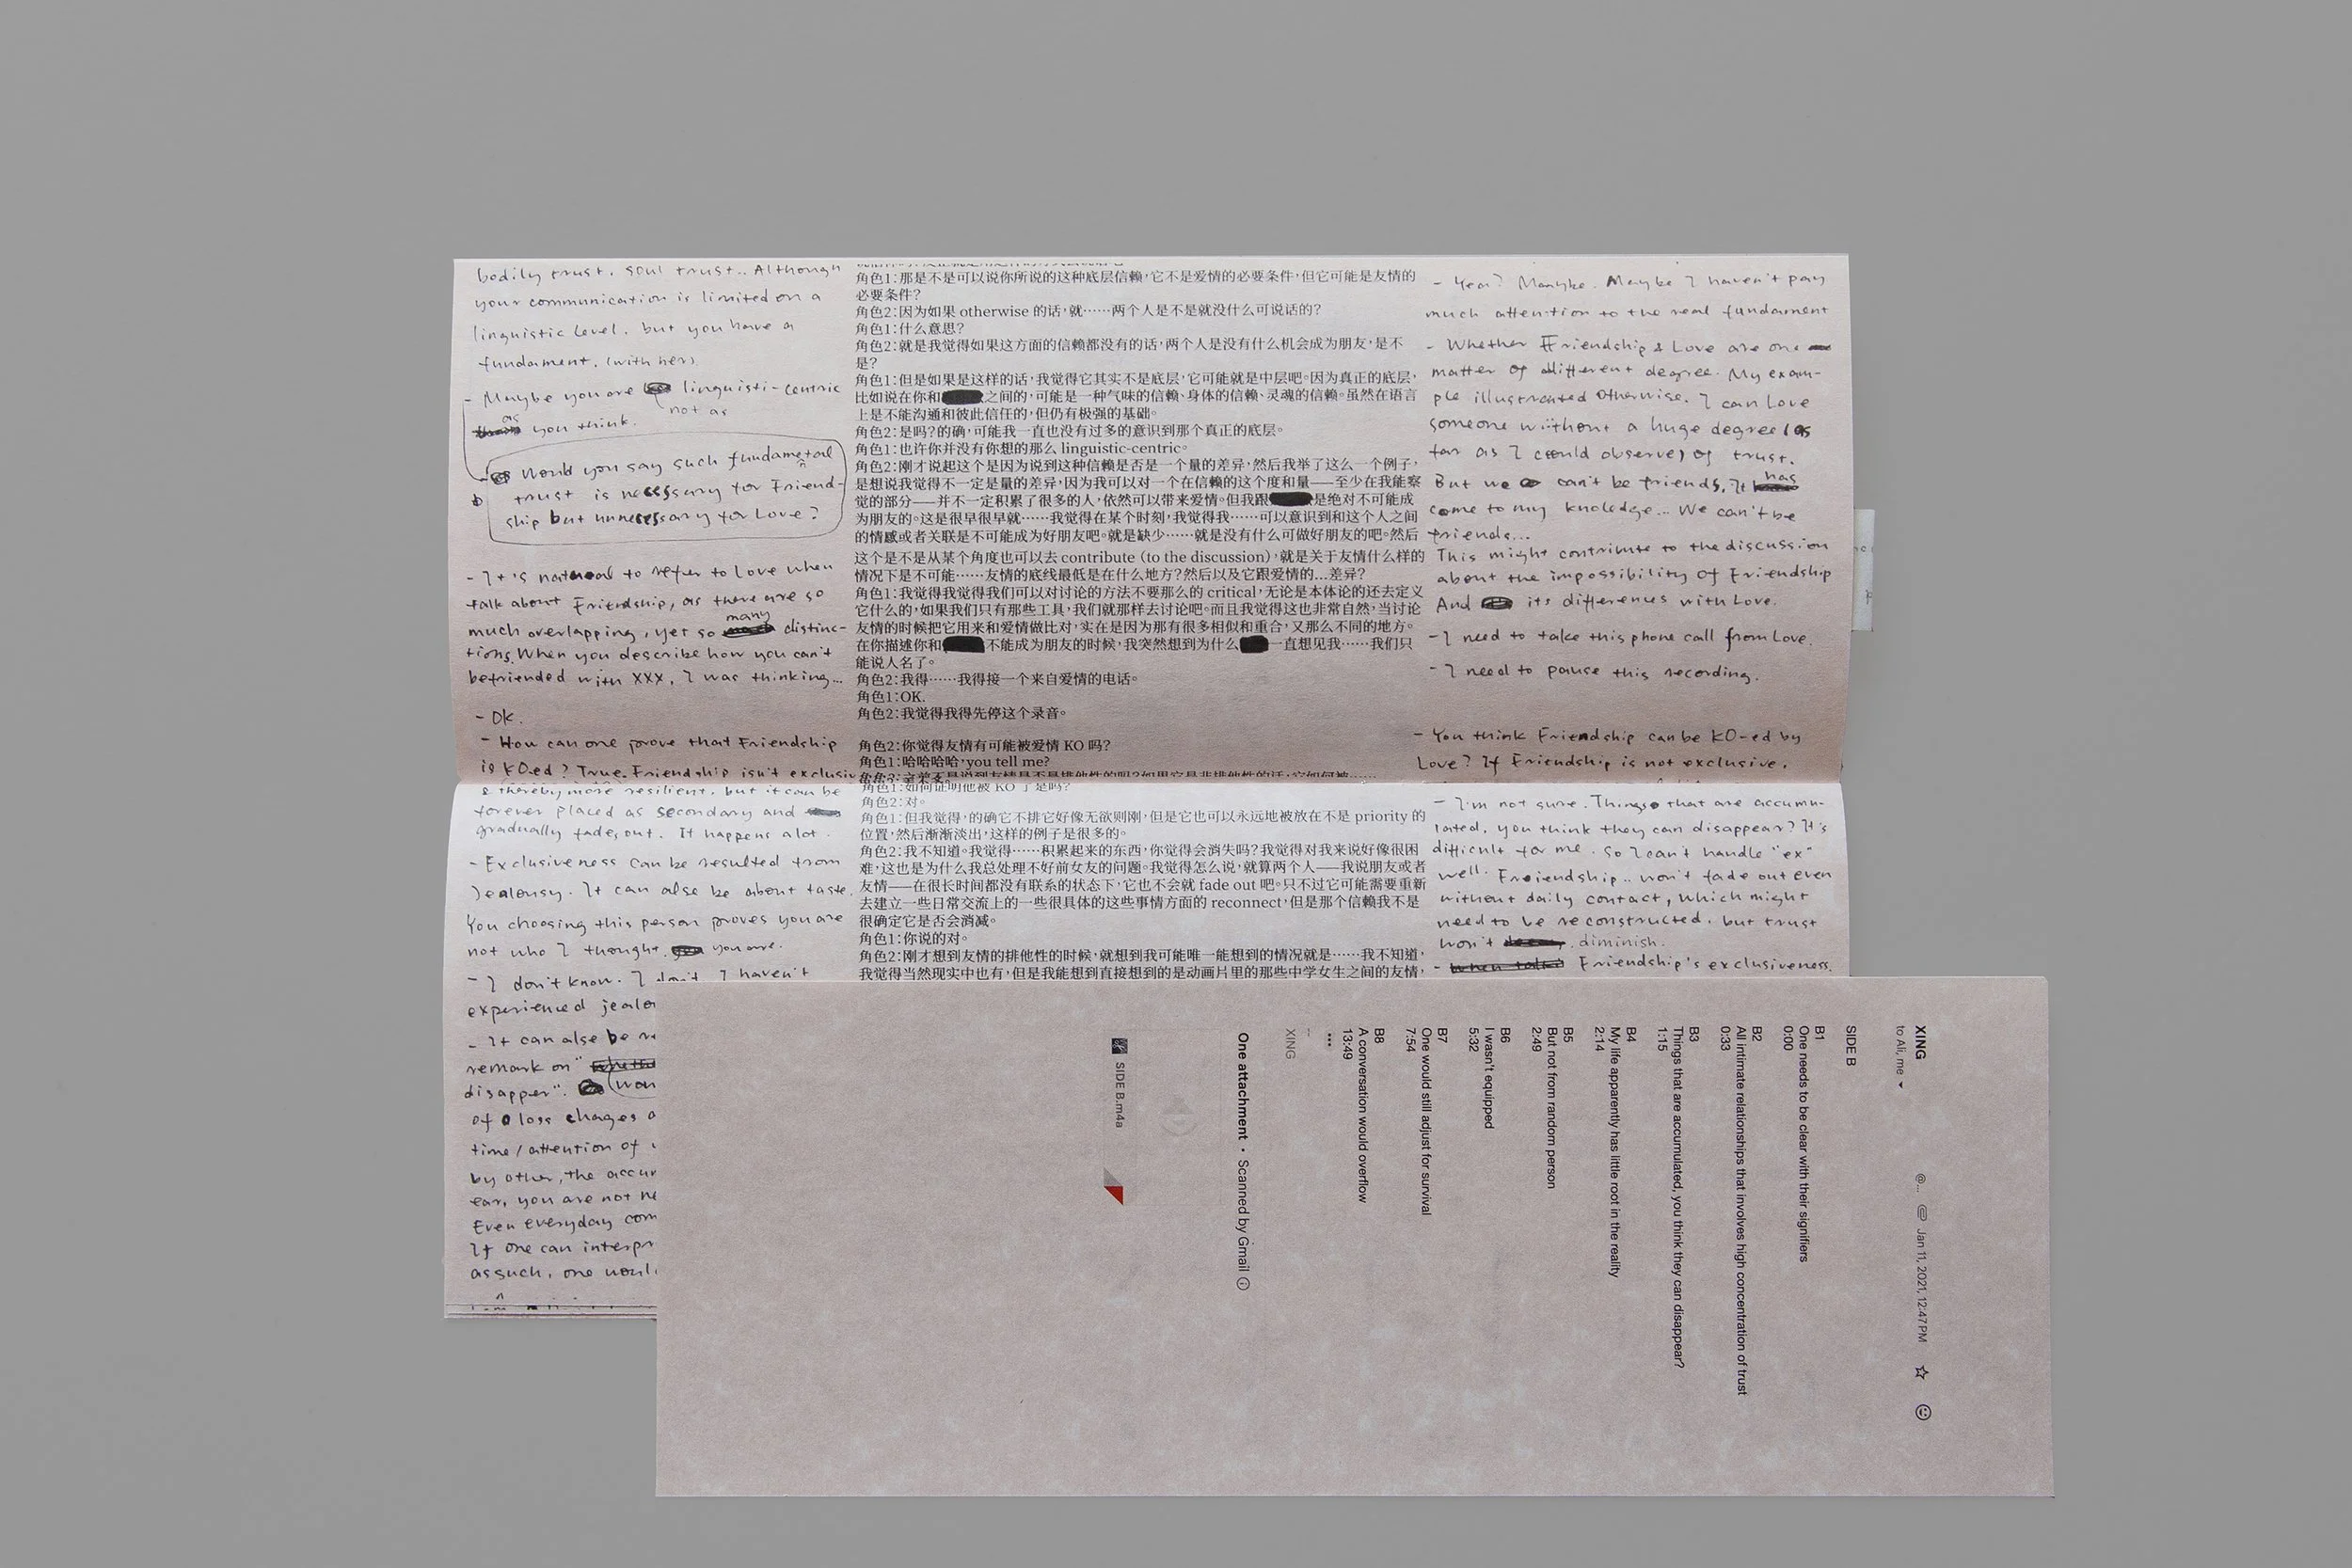 bodily trust. soul trust.. Although
your communication is limited on a
linguistic level. but you have a
fundament. (with her)
- Maybe you are linguisti-centric
not as
as
you think.
Would you say such fundametal
trust is necessary for Friend-
ship but unnecessary for Love?
- It's natural to refer to Love when
talk about Friendship, as there are so
many
much overlapping, yet so distinc-
tions. When you describe how you can't
befriended with XXX, I was thinking...
- OK.
- How can one prove that Friendship
is KO-ed? True. Friendship isn't exclusiv
& thereby more resilient. but it can be
forever placed as secondary and
gradually fades out. It happens a lot.
- Exclusiveness can be resulted from
Jealousy. It can also be about taste.
You choosing this person proves you are
not who I thought you are.
- I don't know. I don't I haven't
experienced jealo
- It can also be re
remark on "
disapper".
of a loss chages a
time / attention of
by other, the accur
ear, you are not ne
Even everyday com
If one can interpr
as such, one woul
角色1:那是不是可以说你所说的这种底层信赖,它不是爱情的必要条件,但它可能是友情的
必要条件?
角色2:因为如果 otherwise 的话,就……两个人是不是就没什么可说话的?
角色1:什么意思?
角色2:就是我觉得如果这方面的信赖都没有的话,两个人是没有什么机会成为朋友,是不
是?
角色1:但是如果是这样的话,我觉得它其实不是底层,它可能就是中层吧。因为真正的底层,
比如说在你和之间的,可能是一种气味的信赖、身体的信赖、灵魂的信赖。虽然在语言
上是不能沟通和彼此信任的,但仍有极强的基础。
角色2:是吗?的确,可能我一直也没有过多的意识到那个真正的底层。
角色1:也许你并没有你想的那么 linguistic-centric。
角色2:刚才说起这个是因为说到这种信赖是否是一个量的差异,然后我举了这么一个例子,
是想说我觉得不一定是量的差异,因为我可以对一个在信赖的这个度和量——至少在我能察
觉的部分——并不一定积累了很多的人,依然可以带来爱情。但我跟是绝对不可能成
为朋友的。这是很早很早就……我觉得在某个时刻,我觉得我……可以意识到和这个人之间
的情感或者关联是不可能成为好朋友吧。就是缺少……就是没有什么可做好朋友的吧。然后
这个是不是从某个角度也可以去 contribute (to the discussion),就是关于友情什么样的
情况下是不可能……友情的底线最低是在什么地方?然后以及它跟爱情的...差异?
角色1:我觉得我觉得我们可以对讨论的方法不要那么的 critical,无论是本体论的还去定义
它什么的,如果我们只有那些工具,我们就那样去讨论吧。而且我觉得这也非常自然,当讨论
友情的时候把它用来和爱情做比对,实在是因为那有很多相似和重合,又那么不同的地方。
在你描述你和不能成为朋友的时候,我突然想到为什么一直想见我……我们只
能说人名了。
角色2:我得……我得接一个来自爱情的电话。
角色1:OK.
角色2:我觉得我得先停这个录音。
角色2:你觉得友情有可能被爱情 KO 吗?
角色1:哈哈哈哈,you tell me?
角色1:如何证明他被 KO 了是吗?
角色2:对。
角色1:但我觉得,的确它不排它好像无欲则刚,但是它也可以永远地被放在不是 priority 的
位置,然后渐渐淡出,这样的例子是很多的。
角色2:我不知道。我觉得……积累起来的东西,你觉得会消失吗?我觉得对我来说好像很困
难,这也是为什么我总处理不好前女友的问题。我觉得怎么说,就算两个人——我说朋友或者
友情——在很长时间都没有联系的状态下,它也不会就 fade out 吧。只不过它可能需要重新
去建立一些日常交流上的一些很具体的这些事情方面的 reconnect,但是那个信赖我不是
很确定它是否会消减。
角色1:你说的对。
角色2:刚才想到友情的排他性的时候,就想到我可能唯一能想到的情况就是……我不知道,
我觉得当然现实中也有,但是我能想到直接想到的是动画片里的那些中学女生之间的友情,
- Yea? Maybe. Maybe I haven't pay
much attention to the real fundament
- Whether Friendship & Love are one
matter of different degree. My exam-
ple illustrated otherwise. I can Love
someone without a huge degree (as
far as I could observe) of trust.
But we can't be friends. It has
come to my knoledge... We can't be
friends...
This might contribute to the discussion
about the impossibility of Friendship
And its differences with Love.
- I need to take this phone call from Love.
- I need to pause this recording.
- You think Friendship can be KO-ed by
Love? If Friendship is not exclusive.
- I'm not sure. Things that are accumu-
lated, you think they can disappear? It's
difficult for me. So I can't handle "ex"
well. Freiendship.. won't fade out even
without daily contact, which might
need to be reconstructed. but trust
won't diminish.
- Friendship's exclusiveness.
XING
@... Jan 11, 2021, 12:47 PM
to Ali, me
SIDE B
B1
One needs to be clear with their signifiers
0:00
B2
All intimate relationships that involves high concentration of trust
0:33
B3
Things that are accumulated, you think they can disappear?
1:15
B4
My life apparently has little root in the reality
2:14
B5
But not from random person
2:49
B6
I wasn't equipped
5:32
B7
One would still adjust for survival
7:54
B8
A conversation would overflow
13:49
...
--
XING
One attachment • Scanned by Gmail
SIDE B.m4a